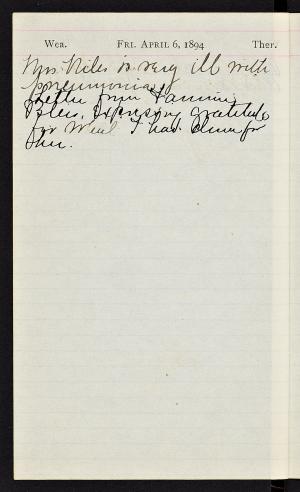 Wea. Fri. April 6, 1894 Ther.
Mrs. Niles is very ill with
pneumonia
Letter from Fannie
expressing gratitude
for what I had done for
her.